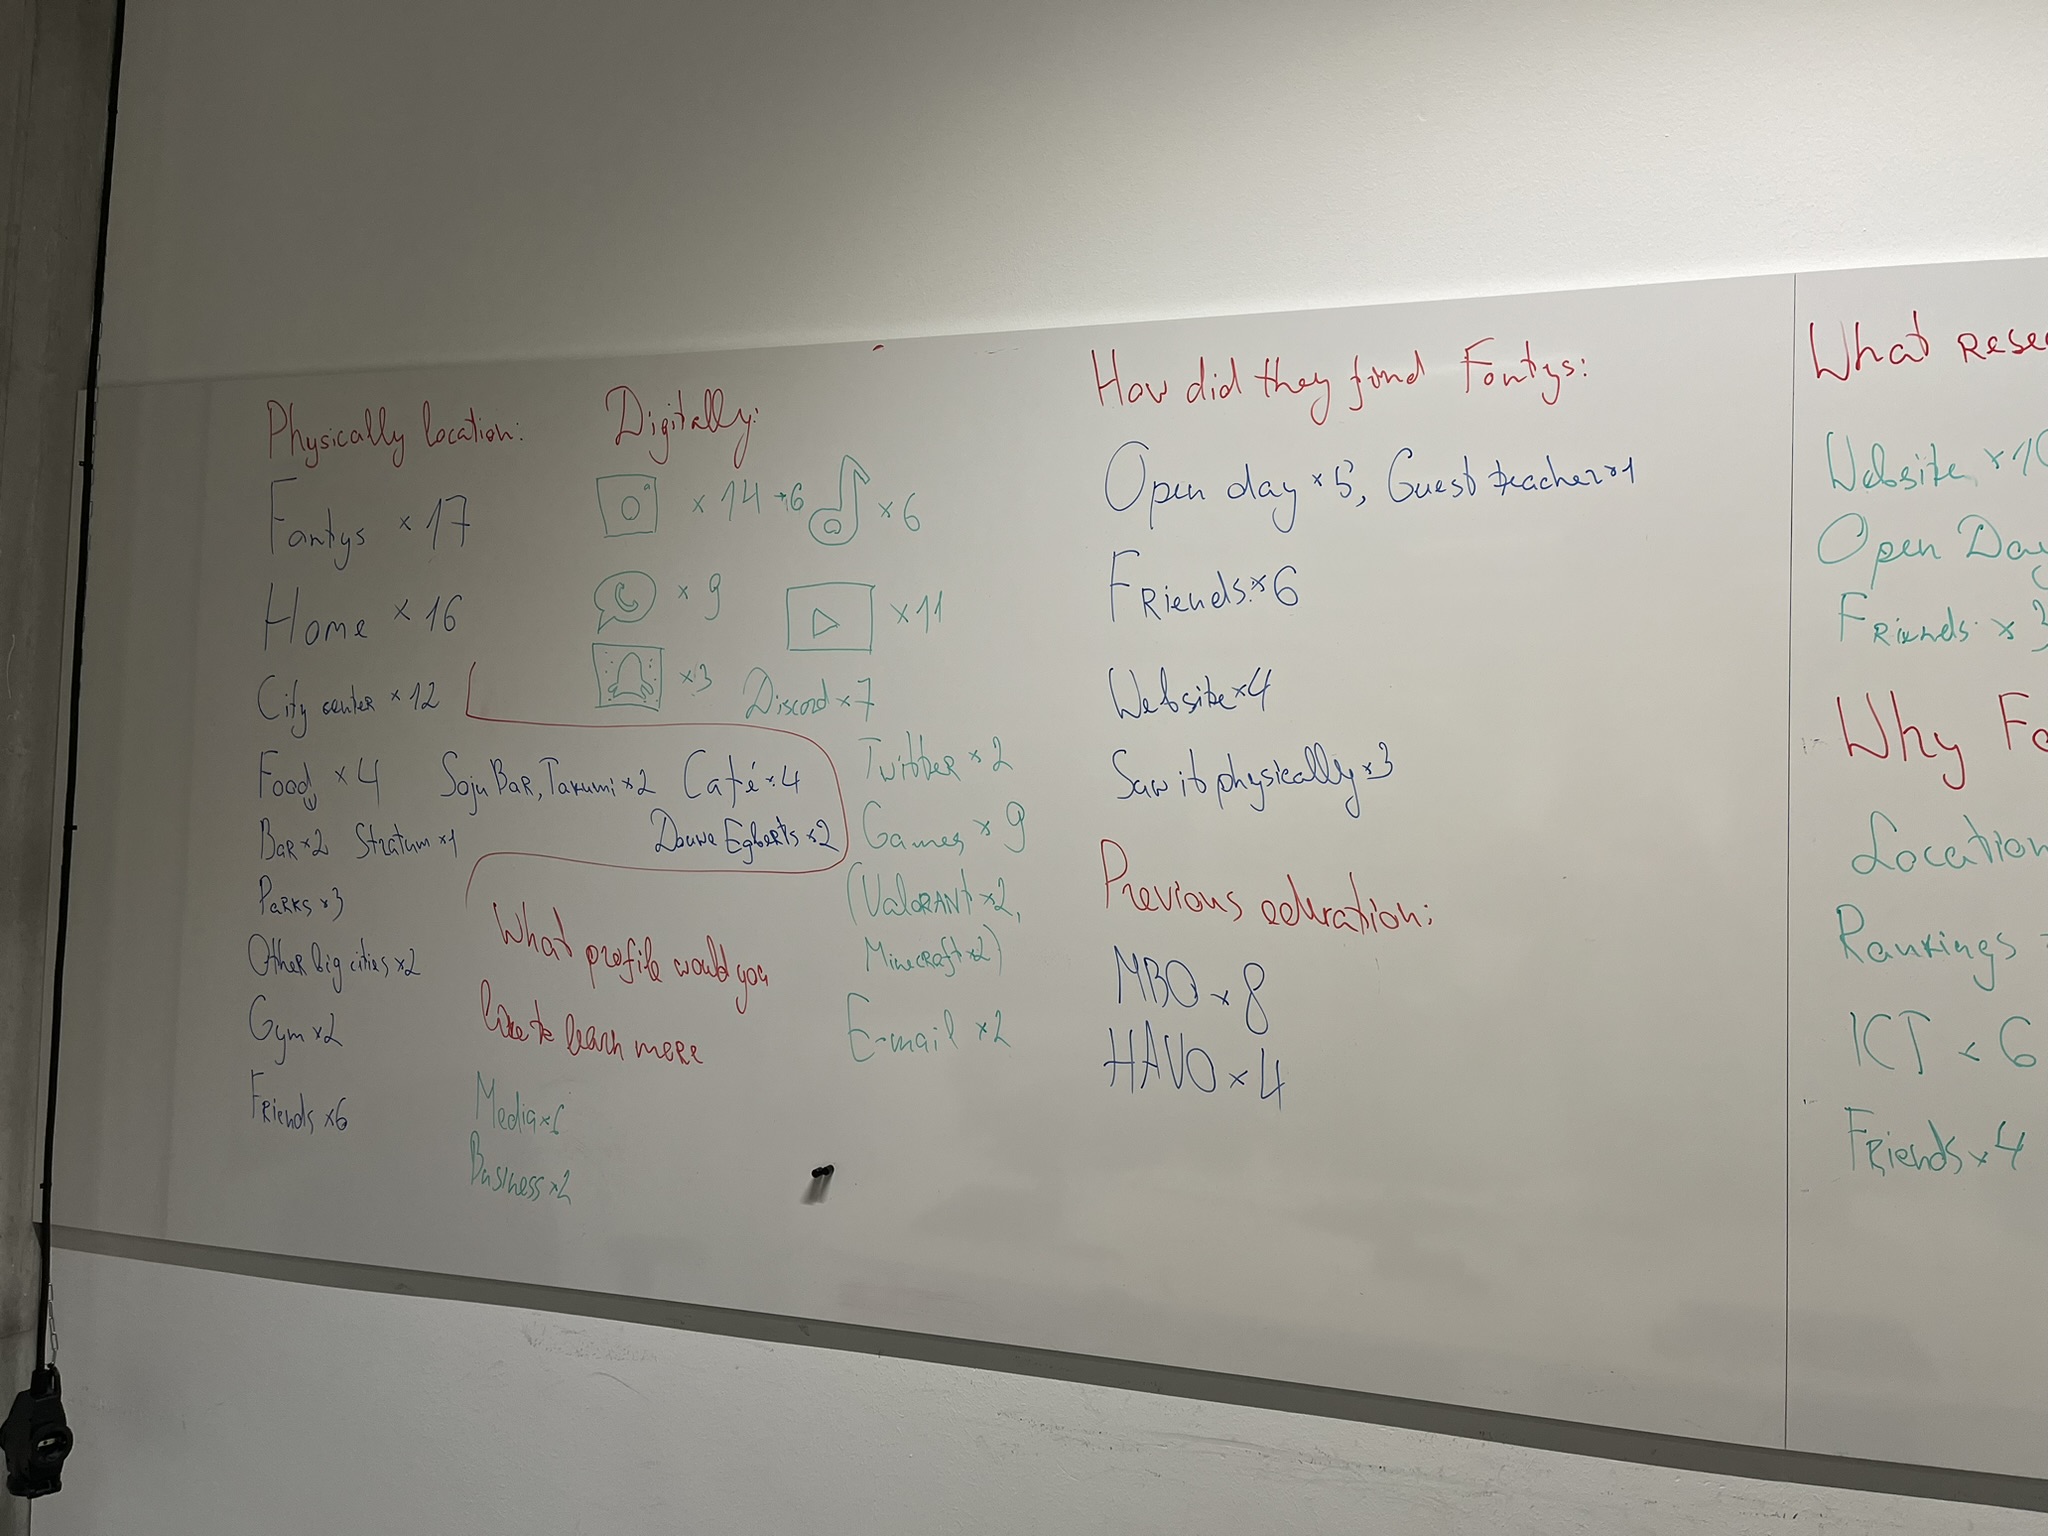 Physically location:
Fontys × 17
Home × 16
City center × 12
Food × 4 Soju Bar, Takumi × 2 Café × 4
Douwe Egberts × 2
Bar × 2 Stratum × 1
Parks × 3
Other big cities × 2
Gym × 2
Friends × 6
Digitally:
× 14 × 6
× 9 × 11
× 3 Discord × 7
Twitter × 2
Games × 9
(Valorant × 2,
Minecraft × 2)
E-mail × 2
What profile would you
like to learn more
Media × 6
Business × 2
How did they find Fontys:
Open day × 5, Guest teacher × 1
Friends × 6
Website × 4
Saw it physically × 3
Previous education:
MBO × 8
HAVO × 4
What rese
Website × 10
Open Day
Friends × 3
Why Fo
Location
Rankings
ICT × 6
Friends × 4